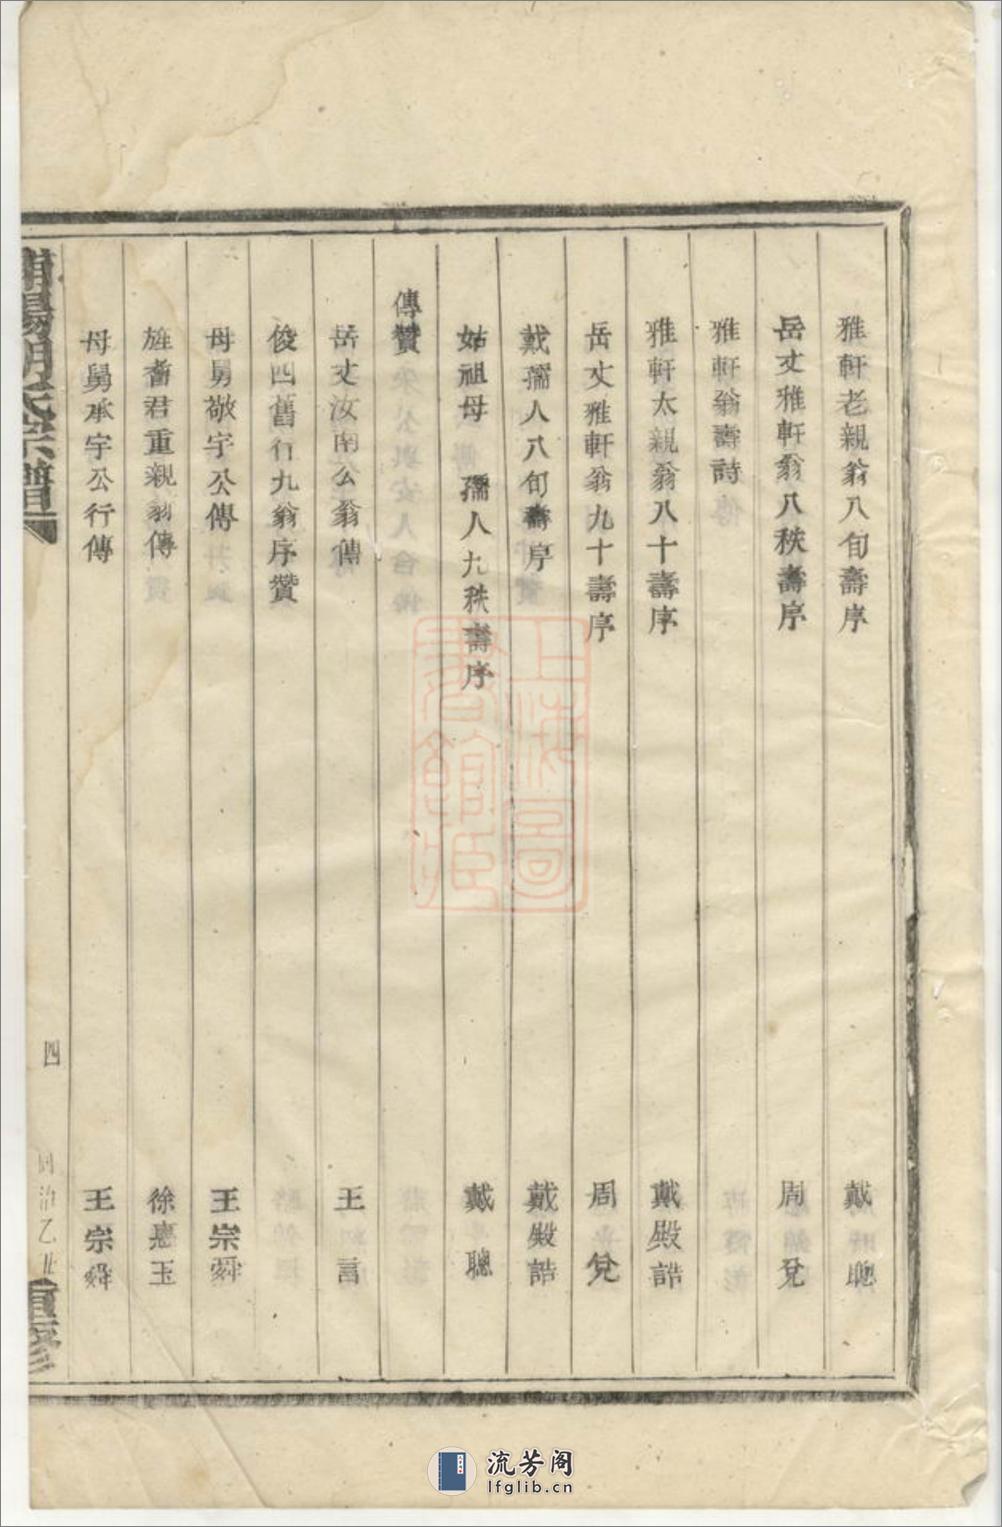 雅軒老親翁八旬壽序 戴聰
岳丈雅軒翁八秩壽序 周兌
雅軒翁壽詩
雅軒太親翁八十壽序 戴殿誥
岳丈雅軒翁九十壽序 周兌
戴孺人八旬壽序 戴殿誥
姑祖母 孺人九秩壽序 戴聰
傳贊
岳丈汝南公翁傳 王言
俊四舊行九翁序贊
母舅敬宇公傳 王宗舜
旌耆君重親翁傳 徐憲玉
母舅承宇公行傳 王宗舜
宗譜
四
同治乙丑
重修
上海圖書館藏
流芳阁
lfglib.cn